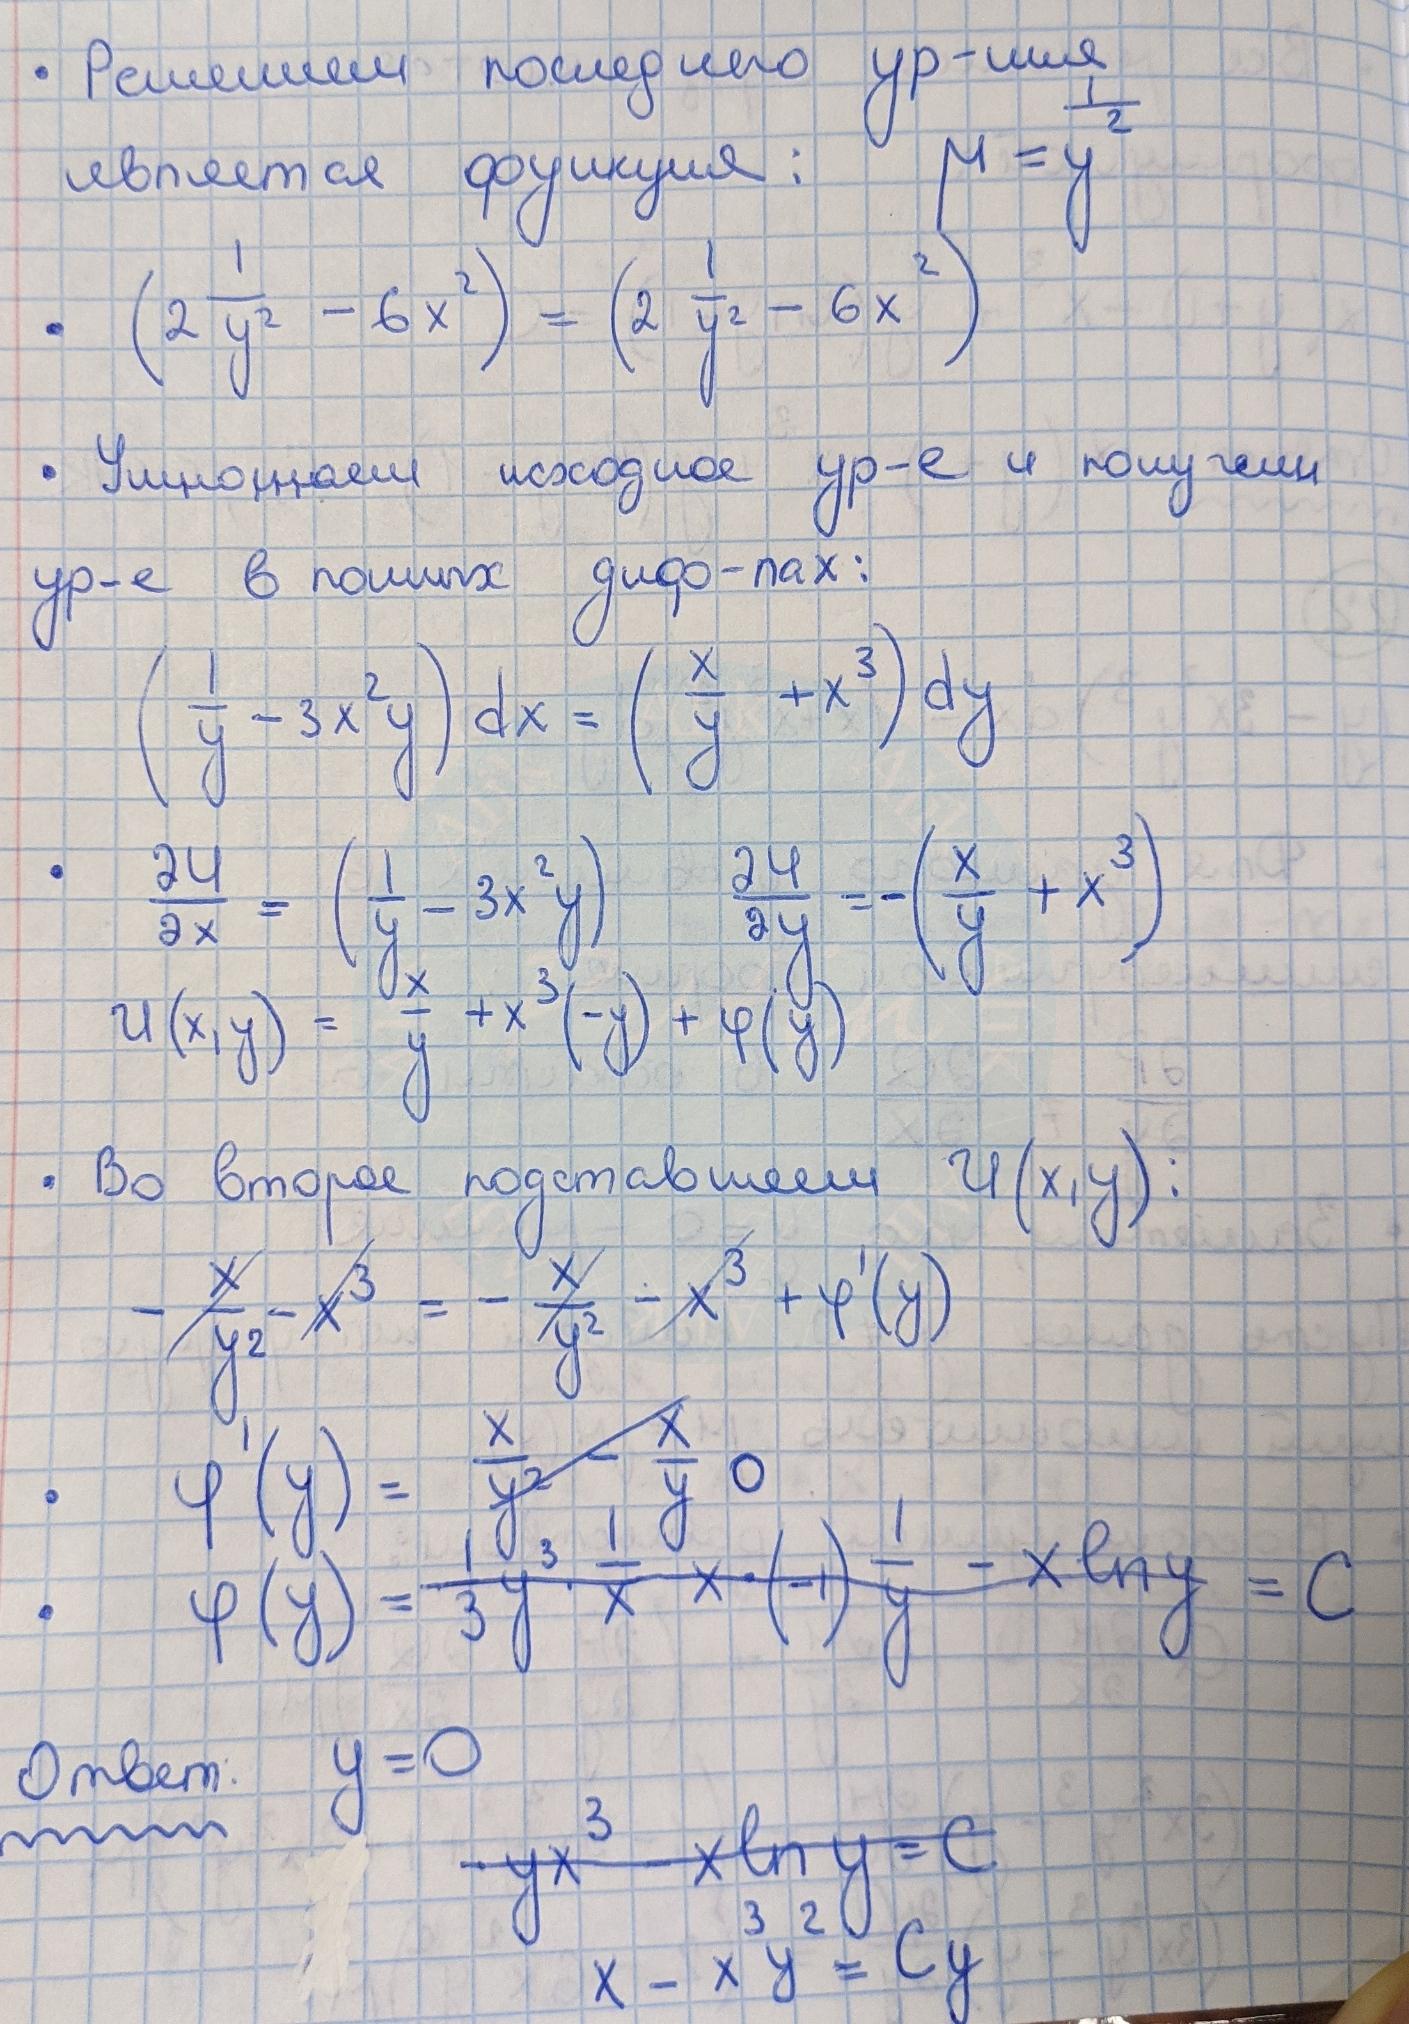 • Решением последнего ур-ния
является функция: μ = y^{\frac{1}{2}}
• (2 \frac{1}{y^2} - 6x^2) = (2 \frac{1}{y^2} - 6x^2)
• Умножаем исходное ур-е и получаем
ур-е в полных диф-лах:
(\frac{1}{y} - 3x^2y) dx = (\frac{x}{y} + x^3) dy
• \frac{∂U}{∂x} = (\frac{1}{y} - 3x^2y) \frac{∂U}{∂y} = -(\frac{x}{y} + x^3)
U(x,y) = \frac{x}{y} + x^3(-y) + φ(y)
• Во второе подставляем U(x,y):
-\frac{x}{y^2} - x^3 = -\frac{x}{y^2} - x^3 + φ'(y)
• φ'(y) = \frac{x}{y^2} - \frac{x}{y} 0
• φ(y) = \frac{1}{3}y^3 · \frac{1}{x} x · (-1) \frac{1}{y} - x ln y = C
Ответ: y = 0
- yx^3 - x ln y = C
x - x^3 y^2 = Cy